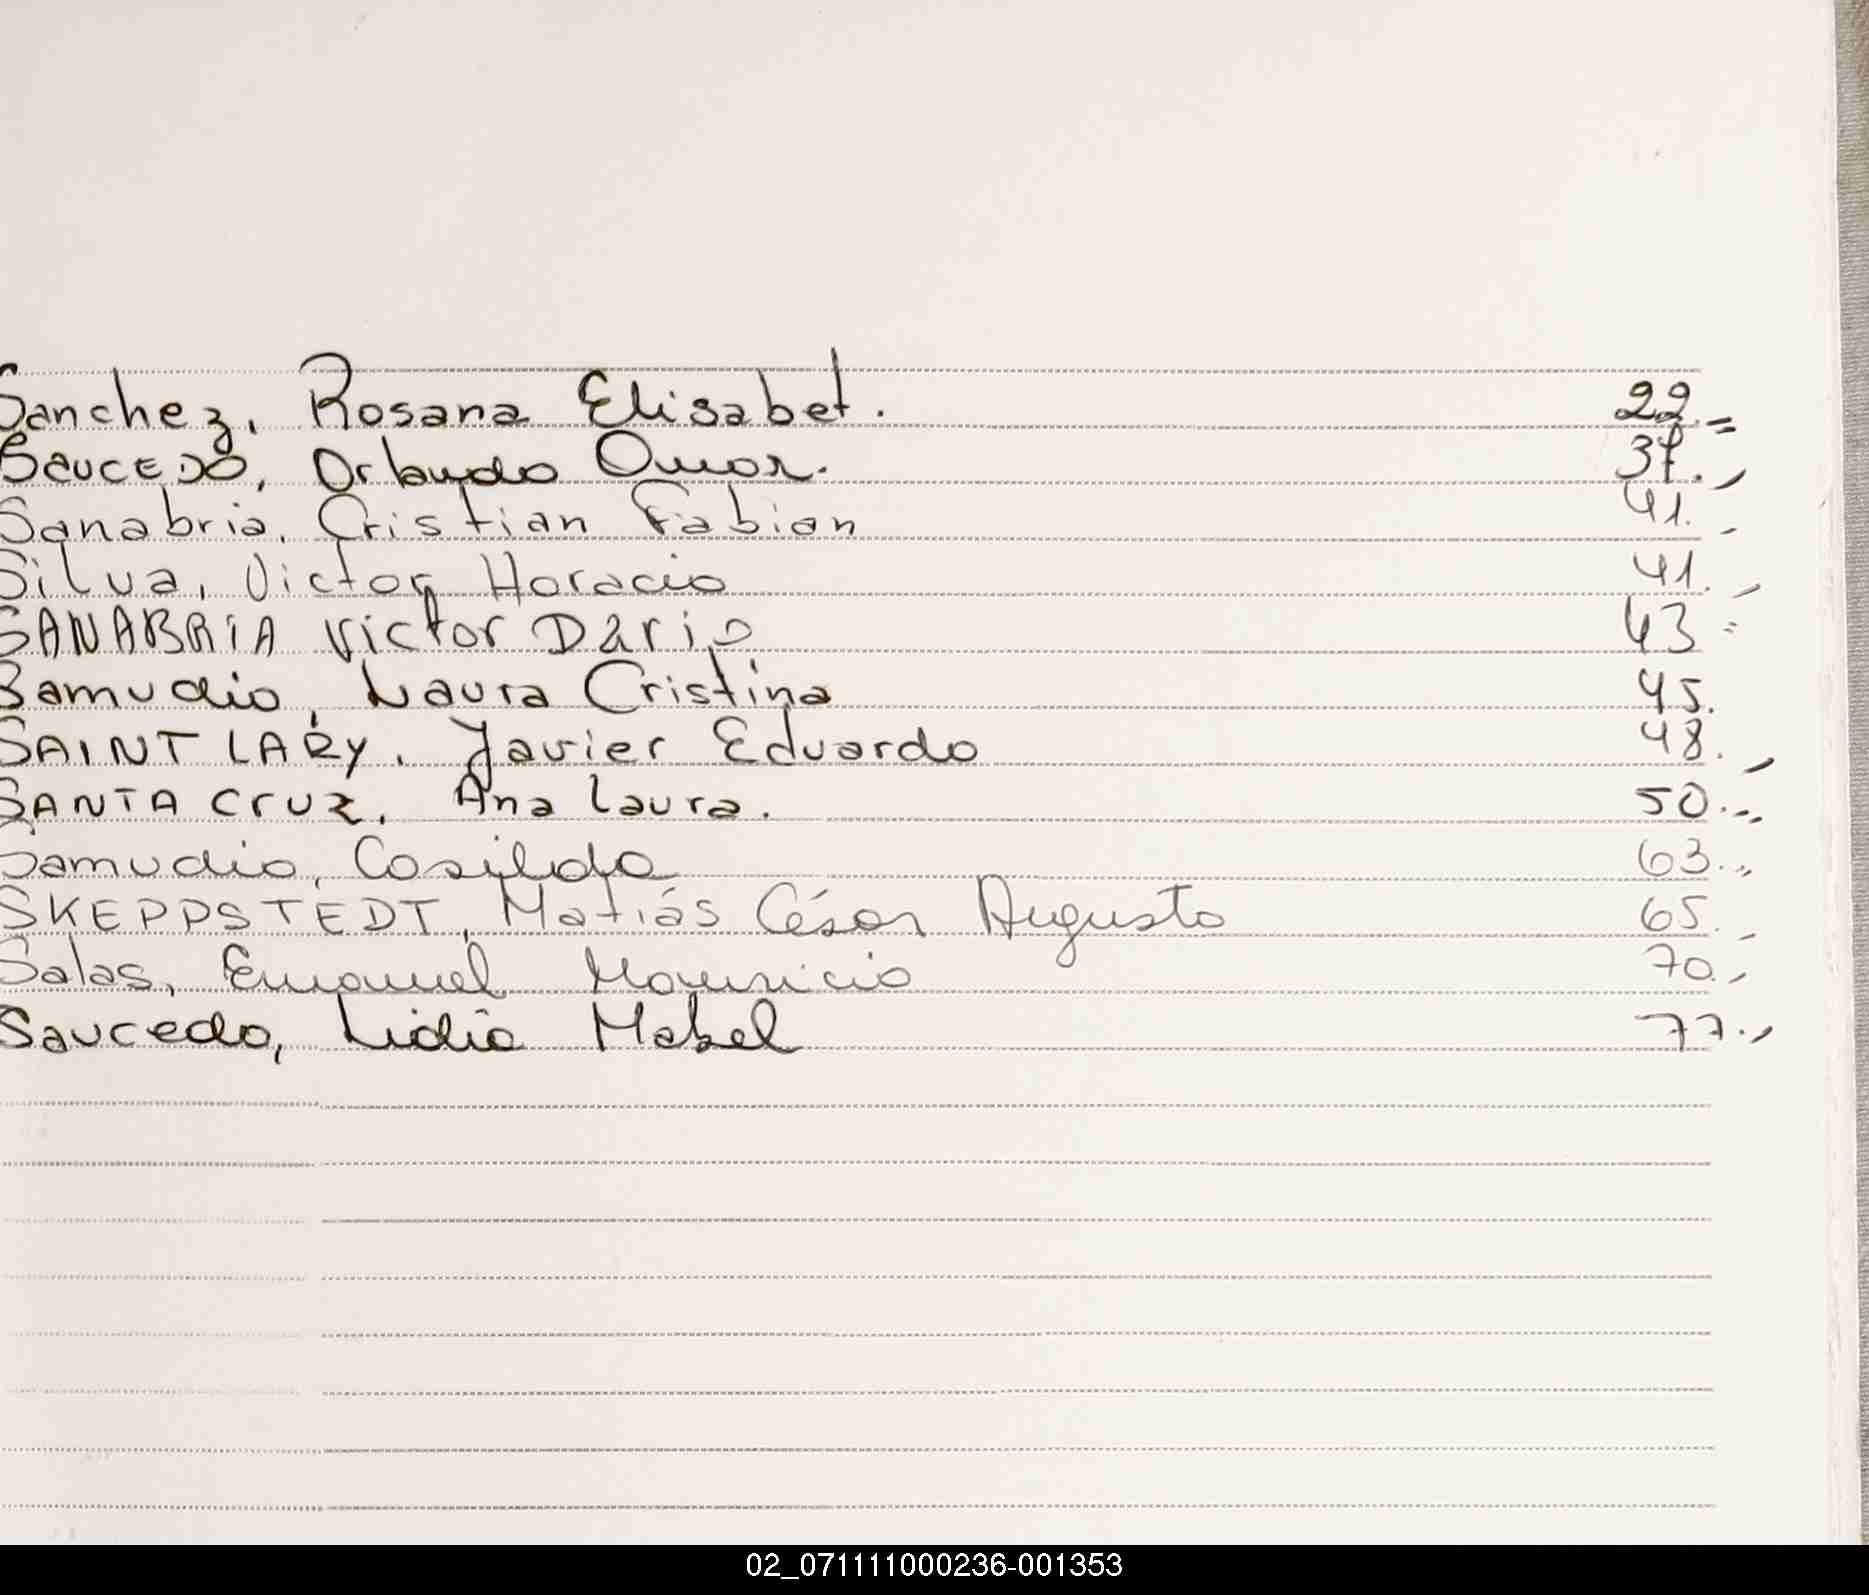 Sanchez, Rosana Elisabet. 22.=
SAUCEDO, Orlando Omar. 37.,
Sanabria, Cristian Fabian 41.-
Silva, Victor Horacio 41.,
SANABRIA Victor Dario 43=
Samudio, Laura Cristina 45.
SAINT LARY, Javier Eduardo 48.,
SANTA CRUZ, Ana Laura. 50.,,
Samudio, Casilda 63.,,
SKEPPSTEDT, Matiás César Augusto 65.-
Salas, Emanuel Mauricio 70.,
Saucedo, Lidia Mabel 77.,
02_071111000236-001353